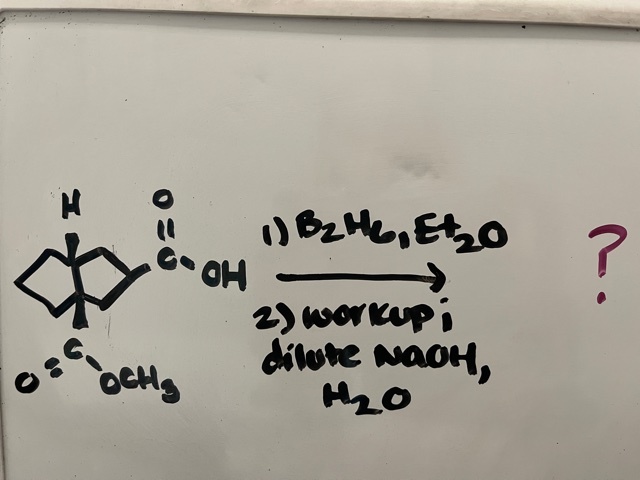 H
O
C
OH
C
O
OCH3
1) B2H6, Et2O
2) workup;
dilute NaOH,
H2O
?